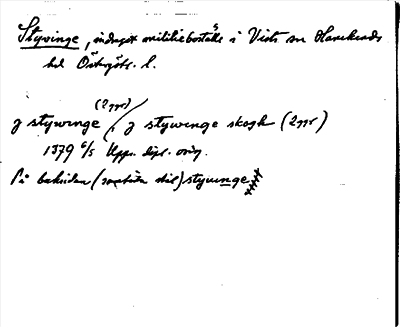 Styvinge, indraget militieboställe i Vists sn Hanekinds
hd Östergötl. l.
(2 ggr)
j stywinge, j stywinge skogh (2 ggr)
1379 6/5 Upps. dipl. orig.
På baksidan (samtida stil) stywinge